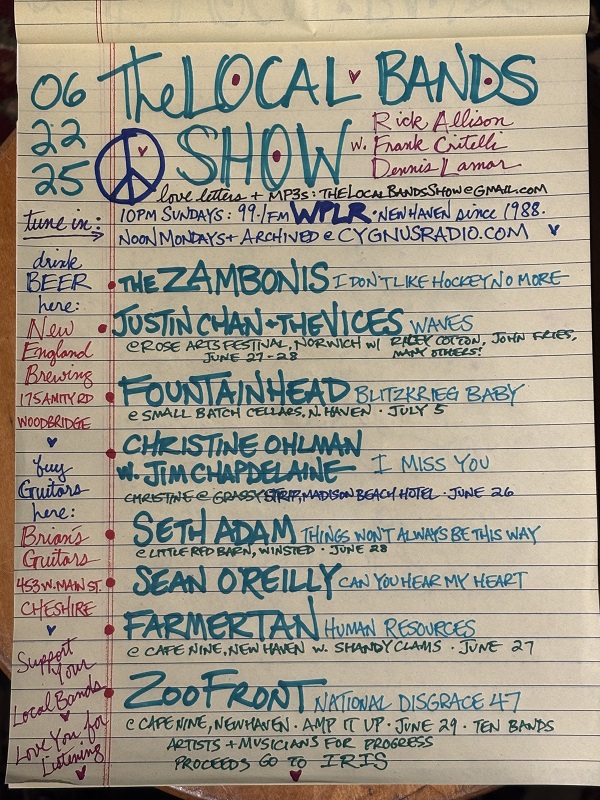 06
22
25
The LOCAL BANDS
SHOW
w. Rick Allison
Frank Critelli
Dennis Lamar
love letters + MP3s: THELOCALBANDSSHOW@GMAIL.COM
tune in:
10PM SUNDAYS: 99.1FM WPLR • NEW HAVEN since 1988.
NOON MONDAYS + ARCHIVED @ CYGNUSRADIO.COM
drink
BEER
here:
New
England
Brewing
175 AMITY RD
WOODBRIDGE
buy
Guitars
here:
Brian's
Guitars
453 W. MAIN ST.
CHESHIRE
Support
Your
Local Bands
Love You for
Listening
• THE ZAMBONIS I DON'T LIKE HOCKEY NO MORE
• JUSTIN CHAN + THE VICES WAVES
@ ROSE ARTS FESTIVAL, NORWICH W/ RILEY COTTON, JOHN FRIES,
JUNE 27-28 MANY OTHERS!
• FOUNTAINHEAD BLITZKRIEG BABY
@ SMALL BATCH CELLARS, N. HAVEN • JULY 5
• CHRISTINE OHLMAN
W. JIM CHAPDELAINE I MISS YOU
CHRISTINE @ GRASSY STRIP, MADISON BEACH HOTEL • JUNE 26
• SETH ADAM THINGS WON'T ALWAYS BE THIS WAY
@ LITTLE RED BARN, WINSTED • JUNE 28
• SEAN O'REILLY CAN YOU HEAR MY HEART
• FARMERTAN HUMAN RESOURCES
@ CAFE NINE, NEW HAVEN W. SHANDY CLAMS • JUNE 27
• ZOO FRONT NATIONAL DISGRACE 47
@ CAFE NINE, NEW HAVEN • AMP IT UP • JUNE 29 • TEN BANDS
ARTISTS + MUSICIANS FOR PROGRESS
PROCEEDS GO TO IRIS